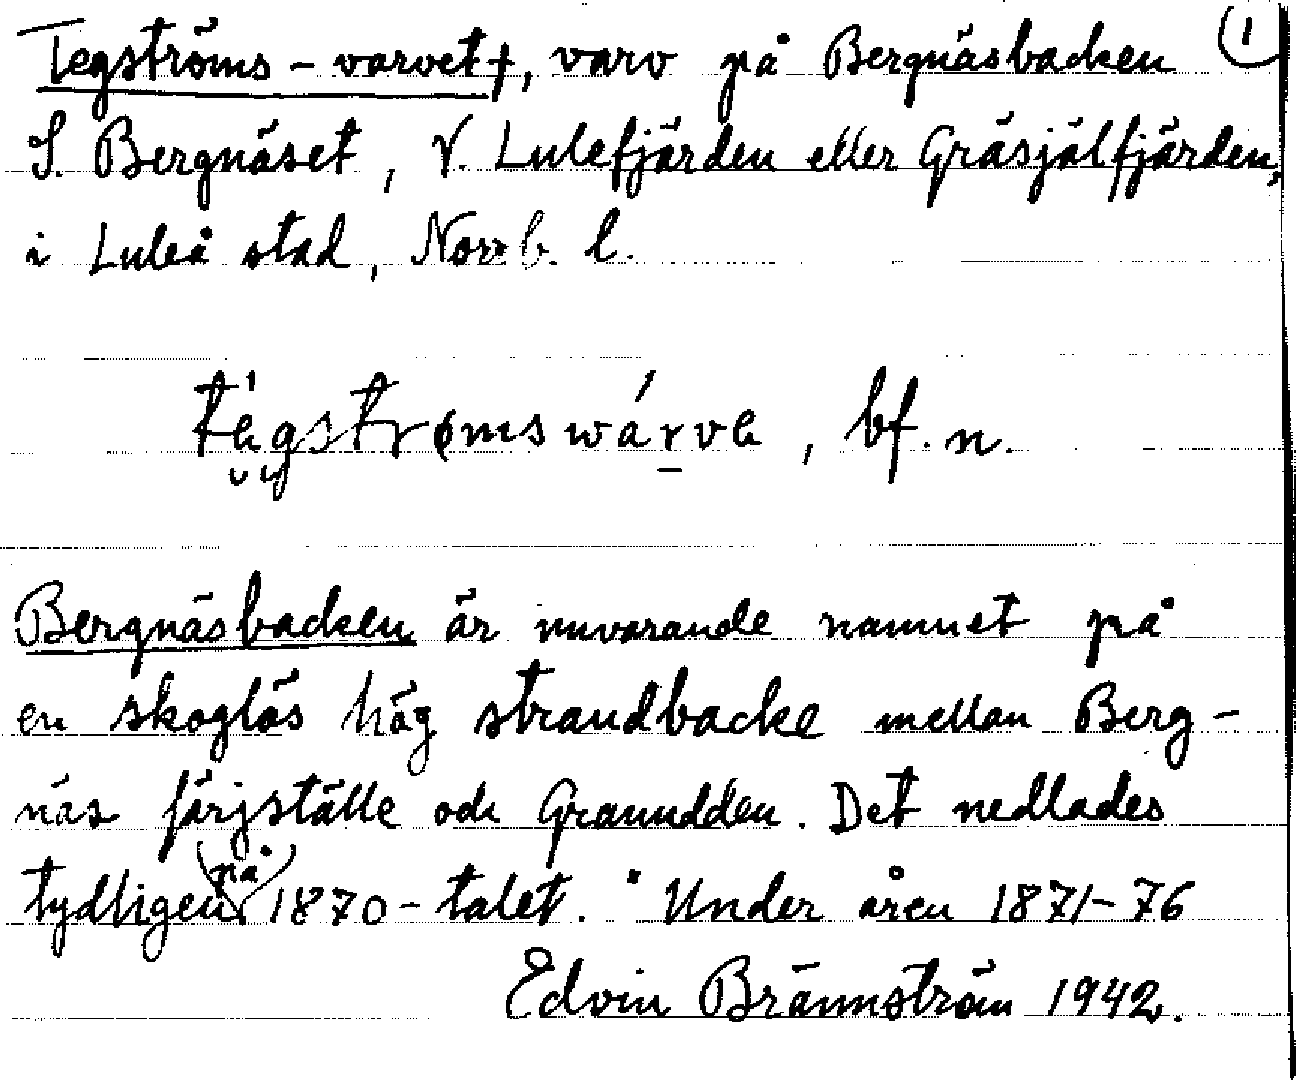 Tegströms-varvet †, varv på Bergnäsbacken ①
S. Bergnäset, V. Lulefjärden eller Gräsjälfjärden,
i Luleå stad, Norrb. l.
, bf. n.
Bergnäsbacken är nuvarande namnet på
en skoglös hög strandbacke mellan Berg-
näs färjställe och Granudden. Det nedlades
tydligen på 1870-talet. "Under åren 1871-76
Edvin Brännström 1942.